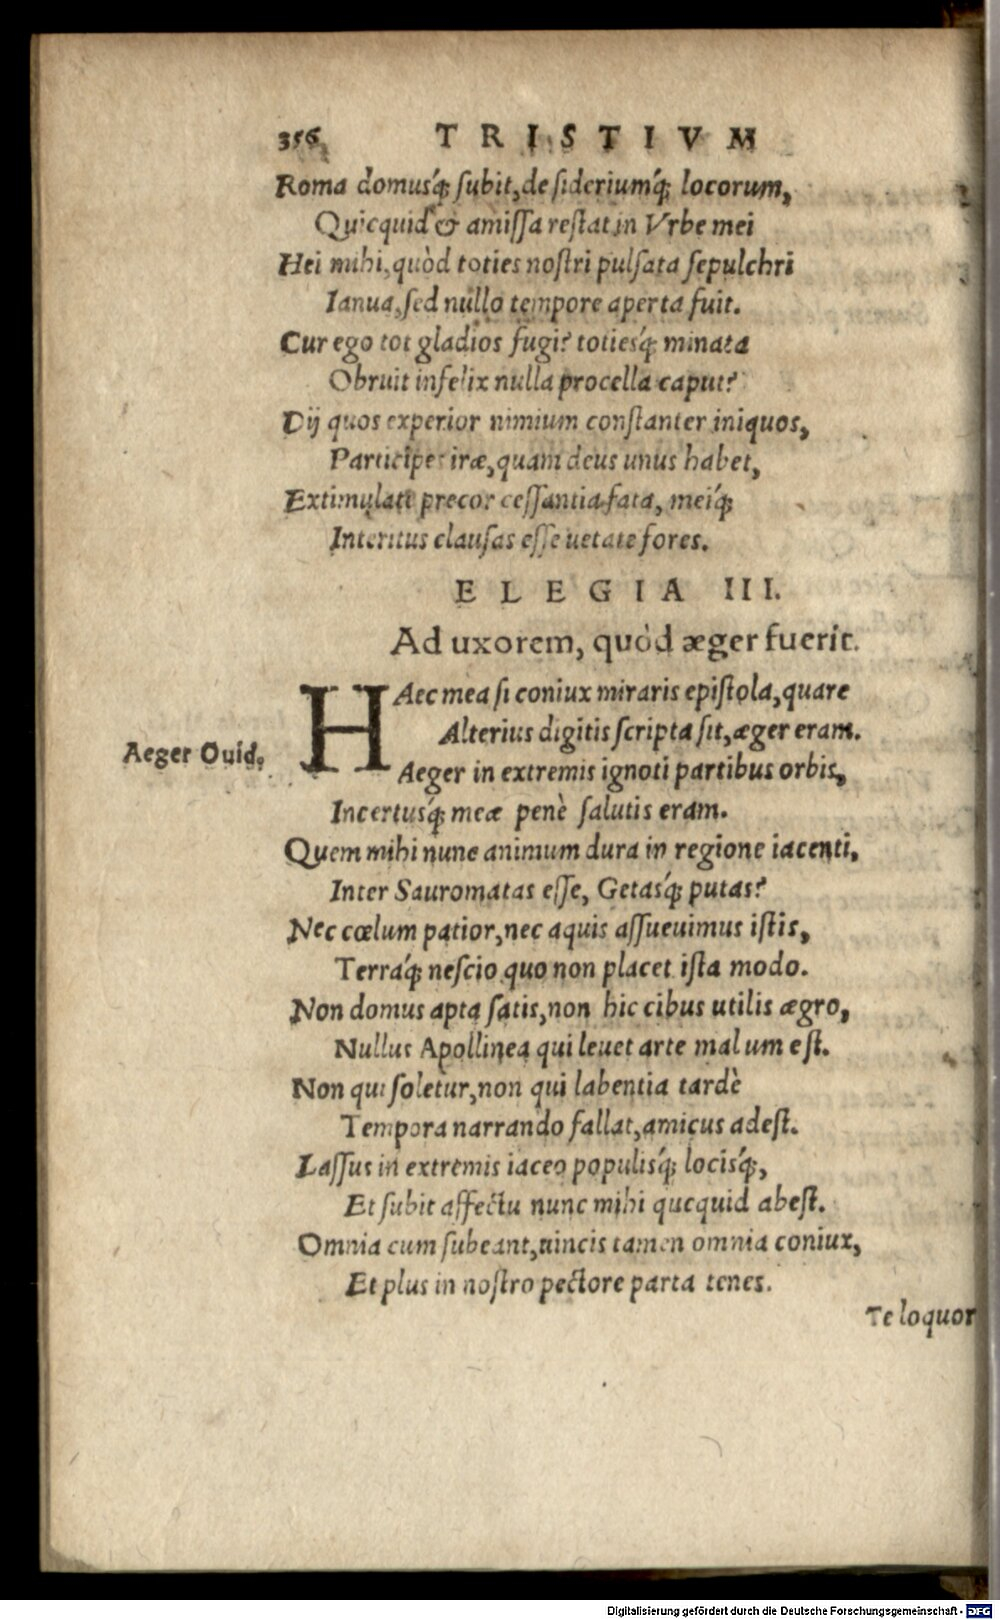 356 TRISTIVM
Roma domusq́; ſubit, deſideriumq́; locorum,
Quicquid & amiſſa reſtat in Vrbe mei
Hei mihi, quòd toties noſtri pulſata ſepulchri
Ianua, ſed nullo tempore aperta fuit.
Cur ego tot gladios fugi? totiesq́; minata
Obruit infelix nulla procella caput?
Dij quos experior nimium conſtanter iniquos,
Participes iræ, quam deus unus habet,
Extimulate precor ceſſantia fata, meiq́;
Interitus clauſas eſſe uetate fores.
ELEGIA III.
Ad uxorem, quòd æger fuerit.
HAec mea ſi coniux miraris epiſtola, quare
Alterius digitis ſcripta ſit, æger eram.
Aeger Ouid.
Aeger in extremis ignoti partibus orbis,
Incertusq́; meæ penè ſalutis eram.
Quem mihi nunc animum dura in regione iacenti,
Inter Sauromatas eſſe, Getasq́; putas?
Nec cœlum patior, nec aquis aſſueuimus iſtis,
Terráq; neſcio quo non placet iſta modo.
Non domus apta ſatis, non hic cibus utilis ægro,
Nullus Apollinea qui leuet arte malum eſt.
Non qui ſoletur, non qui labentia tardè
Tempora narrando fallat, amicus adeſt.
Laſſus in extremis iaceo populisq́; locisq́;,
Et ſubit affectu nunc mihi quequid abeſt.
Omnia cum ſubeant, uincis tamen omnia coniux,
Et plus in noſtro pectore parta tenes.
Te loquor
Digitalisierung gefördert durch die Deutsche Forschungsgemeinschaft - DFG